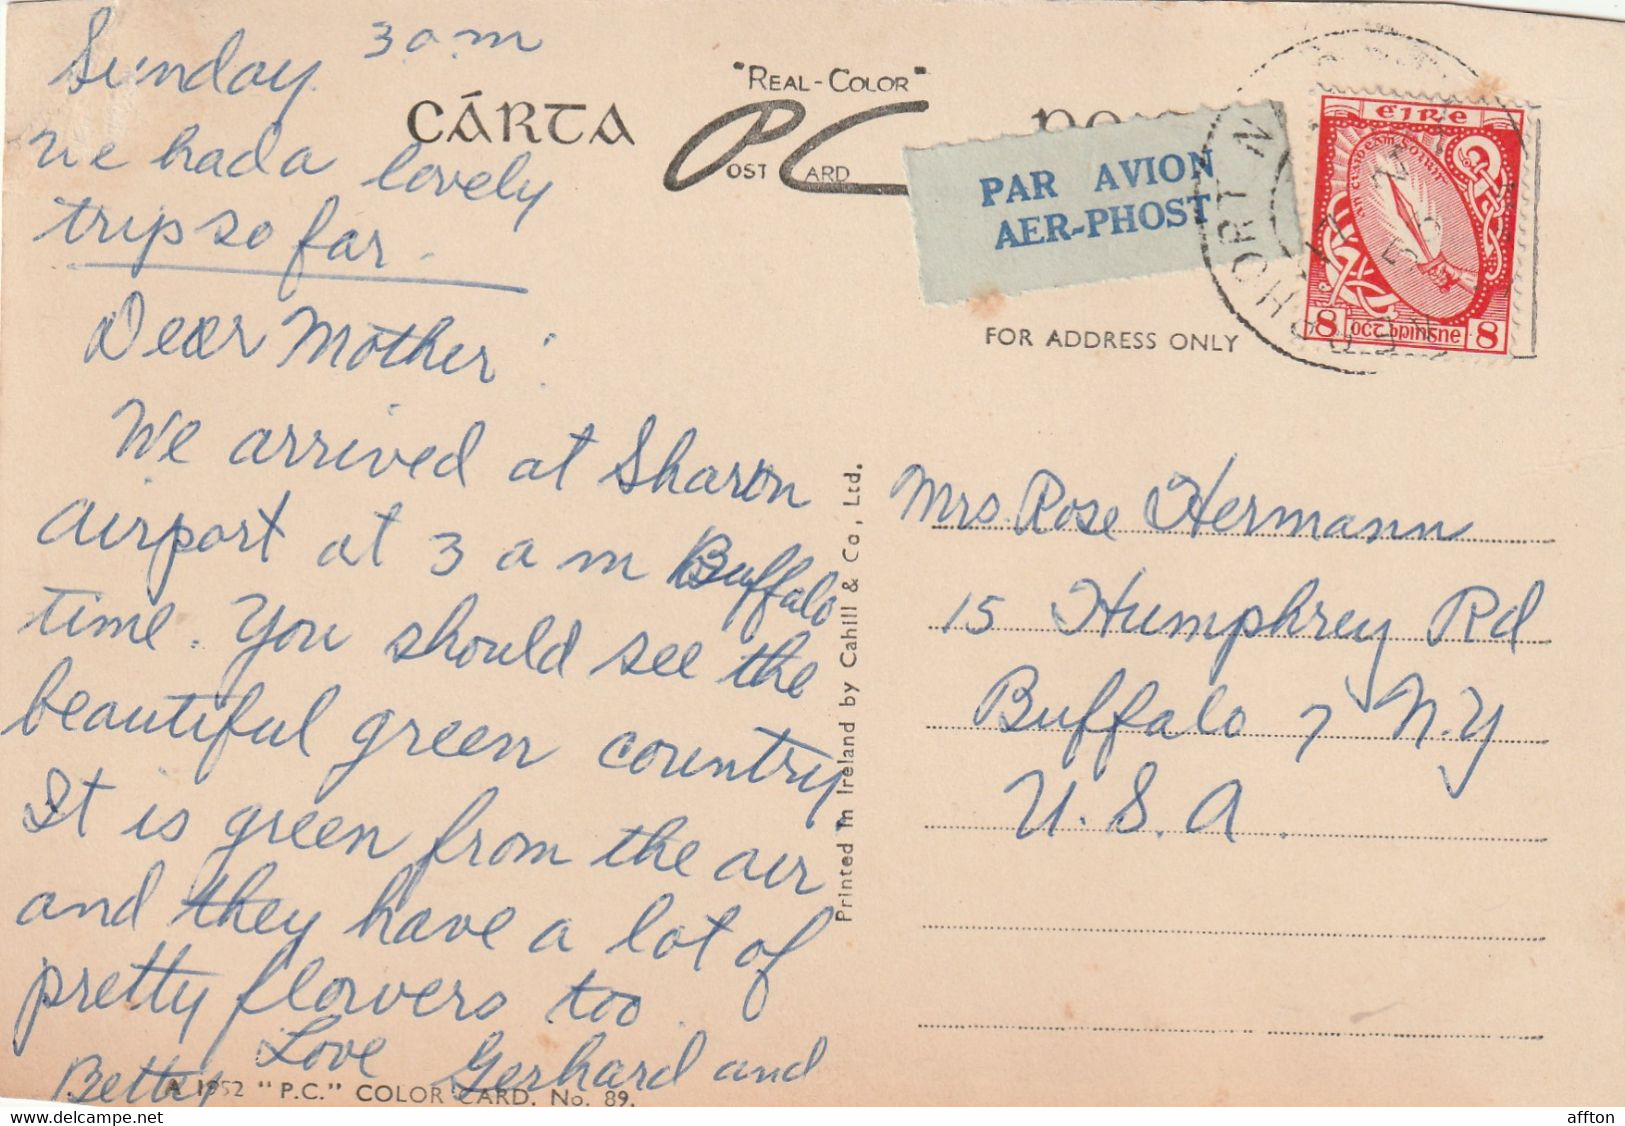 Sunday 3 a m
We had a lovely
trip so far.
Dear Mother:
We arrived at Sharon
airport at 3 a m Buffalo
time. You should see the
beautiful green country
It is green from the air
and they have a lot of
pretty flowers too.
Love Gerhard and
Betty
A 1952 "P.C." COLOR CARD. No. 89.
CÁRTA
"REAL-COLOR"
POST CARD
PAR AVION
AER-PHOST
FOR ADDRESS ONLY
éire
8 OCT bpINSNe 8
Printed in Ireland by Cahill & Co, Ltd.
Mrs. Rose Hermann
15 Humphrey Rd
Buffalo 7 N.Y
U.S.A.
delcampe.net
affton